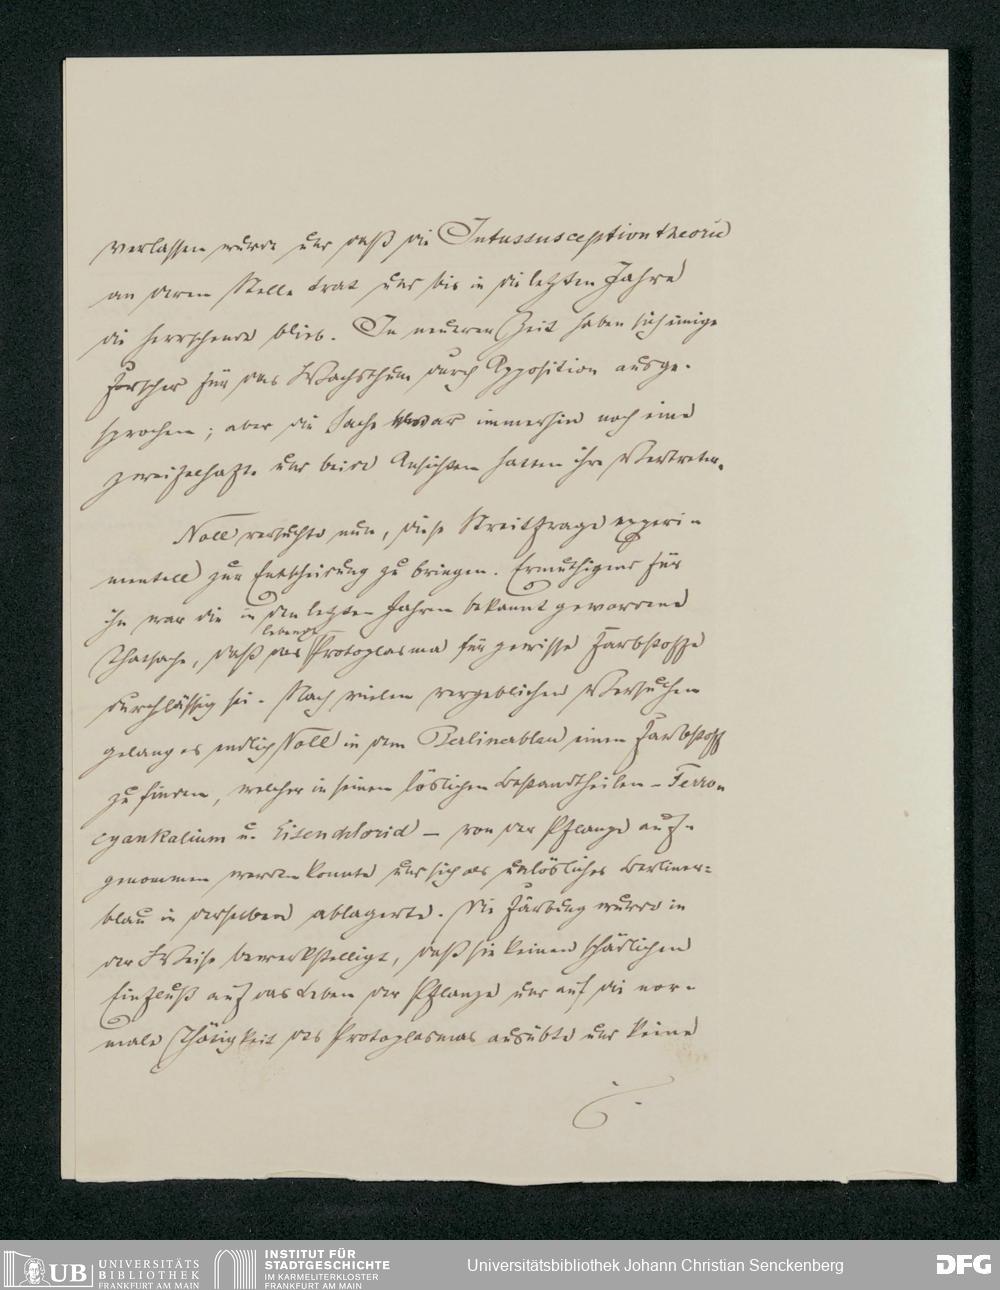 verlassen wurde und daß die Intussusceptiontheorie
an deren Stelle trat und bis in die letzten Jahre
die herrschende blieb. In neueren Zeit haben sich einige
Forscher für das Wachsthum durch Apposition ausge-
sprochen; aber die Sache war immerhin noch eine
zweifelhafte und beide Ansichten hatten ihre Vertreter.
Noll versuchte nun, diese Streitfrage experi-
mentell zur Entscheidung zu bringen. Ermuthigend für
ihn war die in den letzten Jahren bekannt gewordene
lebende
Thatsache, daß das Protoplasma für gewisse Farbstoffe
durchlässig sei. Nach vielen vergeblichen Versuchen
gelang es endlich Noll in dem Berlinerblau einen Farbstoff
zu finden, welcher in seinen löslichen Bestandtheilen – Ferro-
cyankalium u. Eisenchlorid – von der Pflanze auf-
genommen werden konnte und sich als unlösliches Berliner-
blau in derselben ablagerte. Die Färbung wurde in
der Weise bewerkstelligt, daß sie keinen schädlichen
Einfluß auf das Leben der Pflanze und auf die nor-
male Thätigkeit des Protoplasmas ausübte und keine
UB UNIVERSITÄTS
BIBLIOTHEK
FRANKFURT AM MAIN
INSTITUT FÜR
STADTGESCHICHTE
IM KARMELITERKLOSTER
FRANKFURT AM MAIN
Universitätsbibliothek Johann Christian Senckenberg
DFG